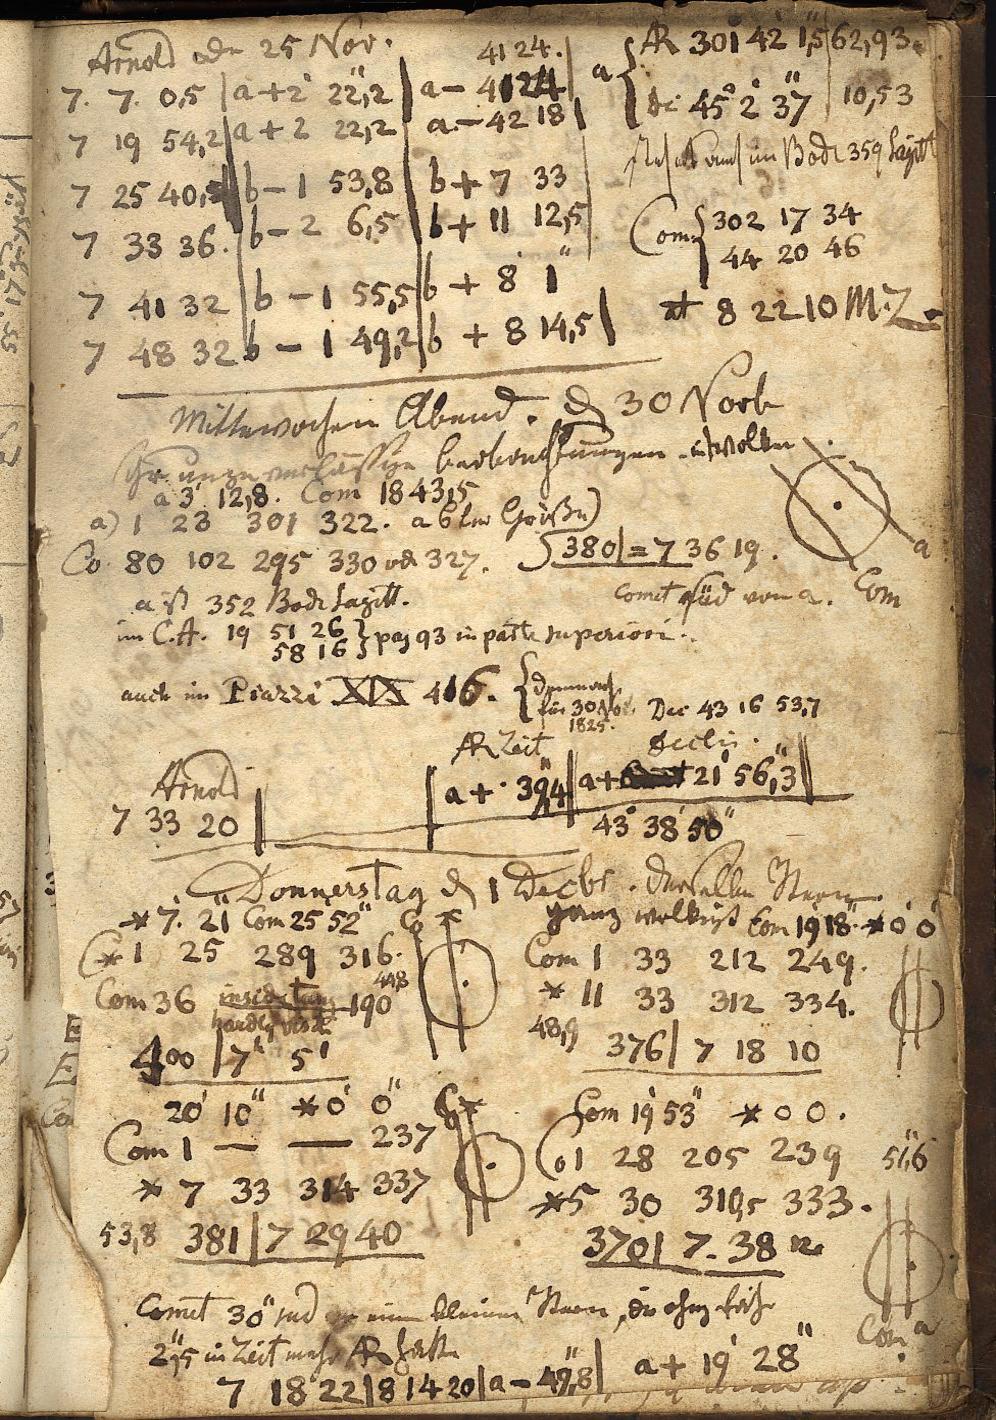 Arnold den 25 Nov.
41 24.
7. 7. 0,5 | a + 2' 22",2 | a - 41 24
7 19 54,2 | a + 2 22,2 | a - 42 18
7 25 40,5 | b - 1 53,8 | b + 7 33
7 33 36. | b - 2 6,5 | b + 11 12,5
7 41 32 | b - 1 55,5 | b + 8' 1"
7 48 32 | b - 1 49,2 | b + 8 14,5
a { AR 301° 42' 1",5 | 62,93
Dec 45° 2' 37" | 10,53
im Bode 359
Com { 302 17 34
44 20 46
at 8 22 10 M.Z.
Mittewochen Abend. d 30 Novb
unzuverlässige beobachtungen wolken
a 3' 12,8. Com 18 43,5
a) 1 23 301 322. a 6ter Größe
Co 80 102 295 330 od 327. 380 | = 7 36 19.
a
Com
a ist 352 Bode Sagitt.
Comet süd von a.
im C.A. 19 51 26
58 16 } pag 93 in parte superiori.
auch im Piazzi XIX 416.
für 30 Nov
1825.
Dec 43 16 53,7
AR Zeit
Declin.
Arnold
a + 39",4 | a + 21' 56",3
7 33 20
43° 38' 50"
Donnerstag d 1 Decbr. derselbe Stern
* 7' 21" Com 25 52" Co *
* 1 25 289 316.
Com 36 190
448
400 | 7h 5'
ganz wolkigt Com 19 18" * 0' 0"
Com 1 33 212 249.
* 11 33 312 334.
48,9
376 | 7 18 10
20' 10" * 0' 0" Co *
Com 1 — — 237
* 7 33 314 337
53,8 381 | 7 29 40
Com 19' 53" * 0 0.
Co 1 28 205 239 51",6
* 5 30 310,5 333.
370 | 7. 38 12
Com a
Comet 30" sud einem kleinen Stern, der ohngefähr
2",5 in Zeit mehr AR hatte
7 18 22 | 8 14 20 | a - 49",8 | a + 19' 28"